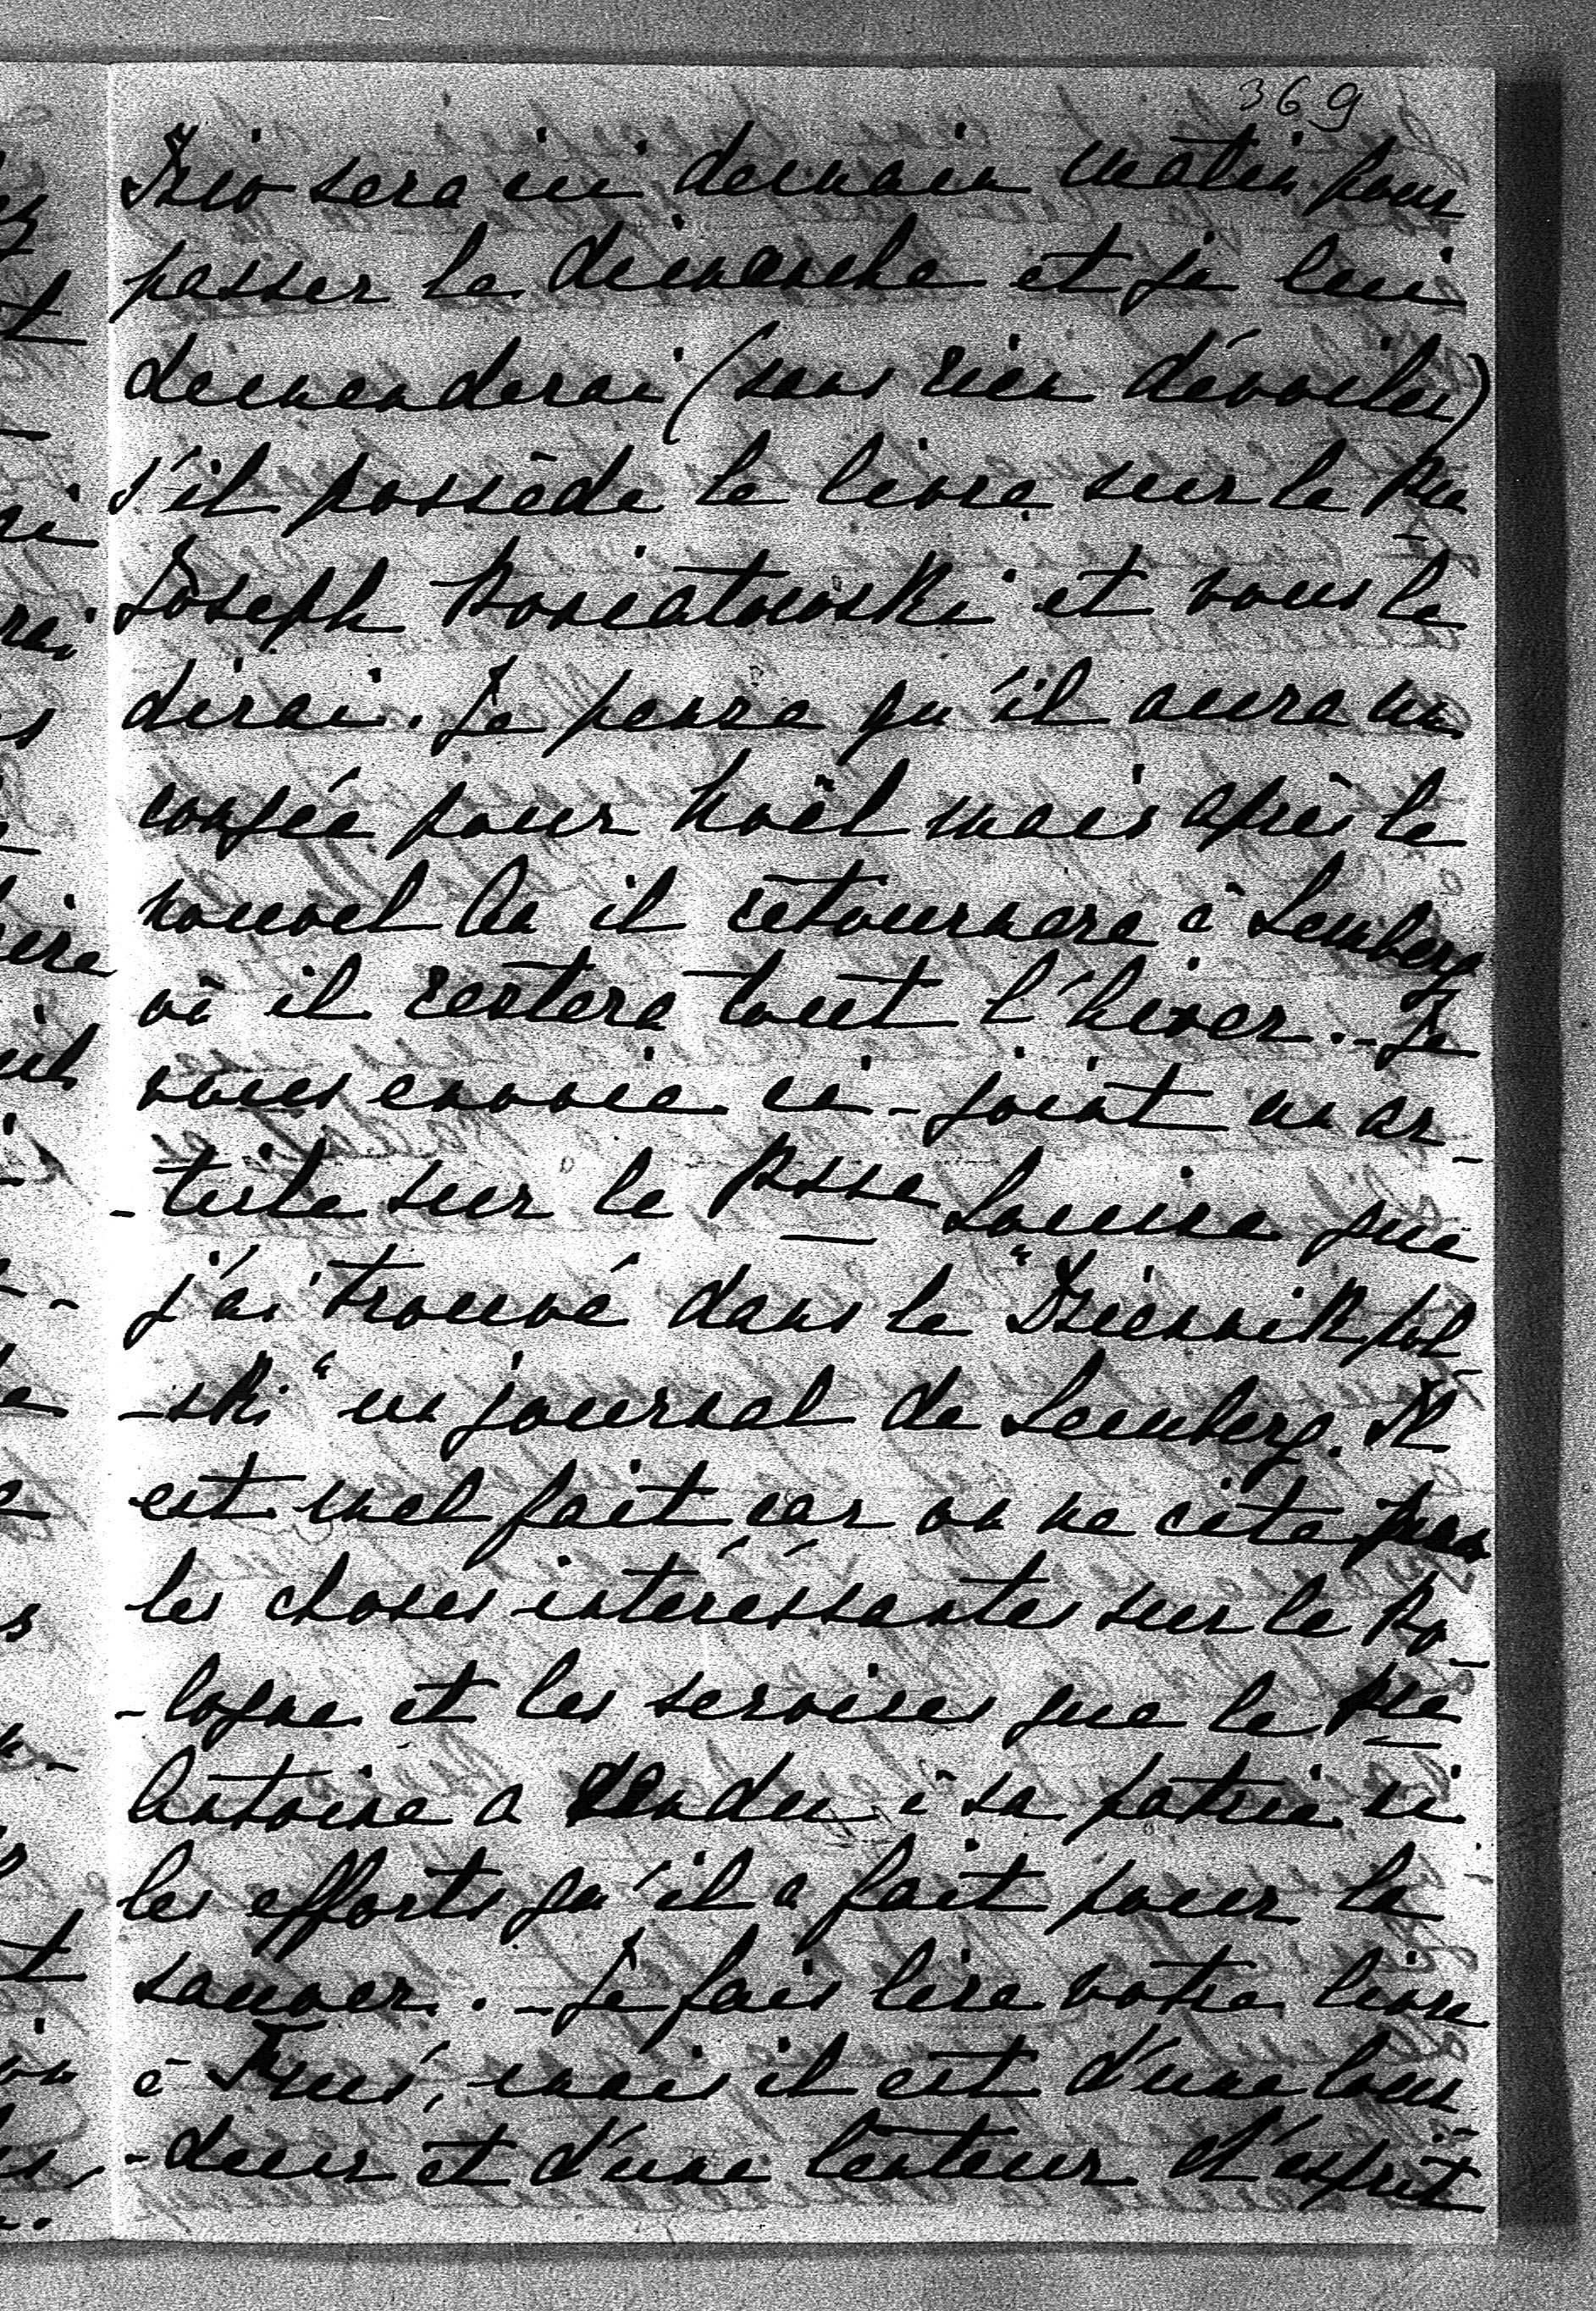 369
sera ici demain matin pour
passer le dimanche et je lui
demanderai (sans rien dévoiler)
s'il possède le livre sur le Pce
Joseph Poniatowski et vous le
dirai. Je pense qu'il aura un
congée pour Noël mais après le
nouvel An il retournera à Lemberg
où il restera tout l'hiver. - Je
vous envoie ci-joint un ar-
-ticle sur la Psse Louise que
j'ai trouvé dans le "Dziennik pol-
-ski" un journal de Lemberg. Il
est mal fait car on ne cite pas
les choses intéressantes sur la Po-
-logne et les services que le Pce
Antoine a rendu à sa patrie ni
les efforts qu'il a fait pour la
sauver. - Je fais lire votre livre
à mais il est d'une lour-
-deur et d'une lenteur d'esprit